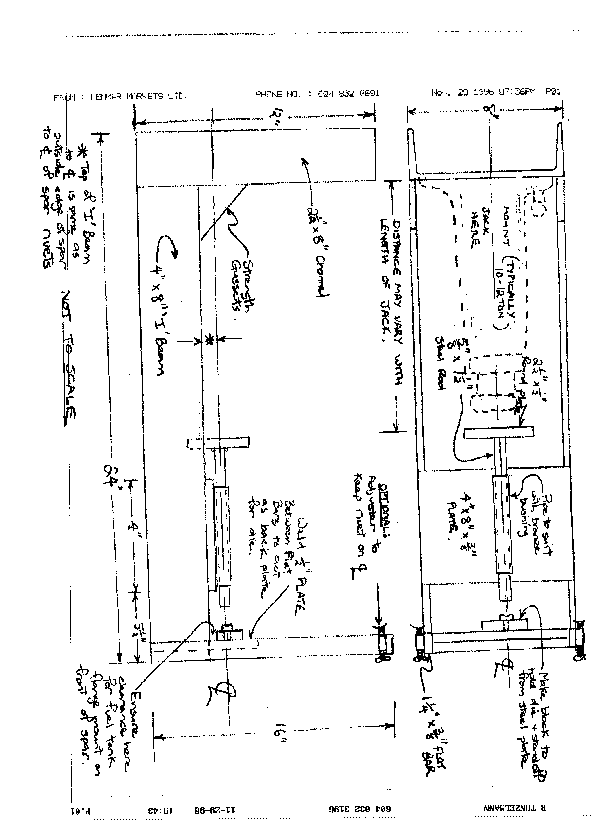 FROM : LENMAR MARKETS LTD.
PHONE NO. : 604 832 0691
Nov. 29 1996 07:36PM P01
12"
8"
* Top of 'I' Beam
to ℄ is same as
outside edge of spar
to ℄ of spar rivets
NOT TO SCALE
4" x 8" 'I' Beam
Strength
Gussets
x 8" Channel
DISTANCE MAY VARY WITH
LENGTH OF JACK.
MOUNT
JACK
HERE
(TYPICALLY
10-12 TON)
2 1/2" x 1/2"
Round Plate
5/8" x 7 1/2"
Steel Rod
*
64"
4"
3 1/2"
Weld 1/2" PLATE
Between Flat
Bars to act
as back plate
for die.
OPTIONAL:
Adjuster to
keep rivet on ℄
4" x 8" x 1/2"
PLATE.
Pipe to suit
with bronze
bushing
℄
℄
Ensure
clearance here
for fuel tank
flange mount on
front of spar.
16"
1 1/4" x 3/8" FLAT
BAR
Make block to
hold die + standoff
from steel plate
R TUNZELMANN
604 832 3196
11-29-96
19:43
P.01